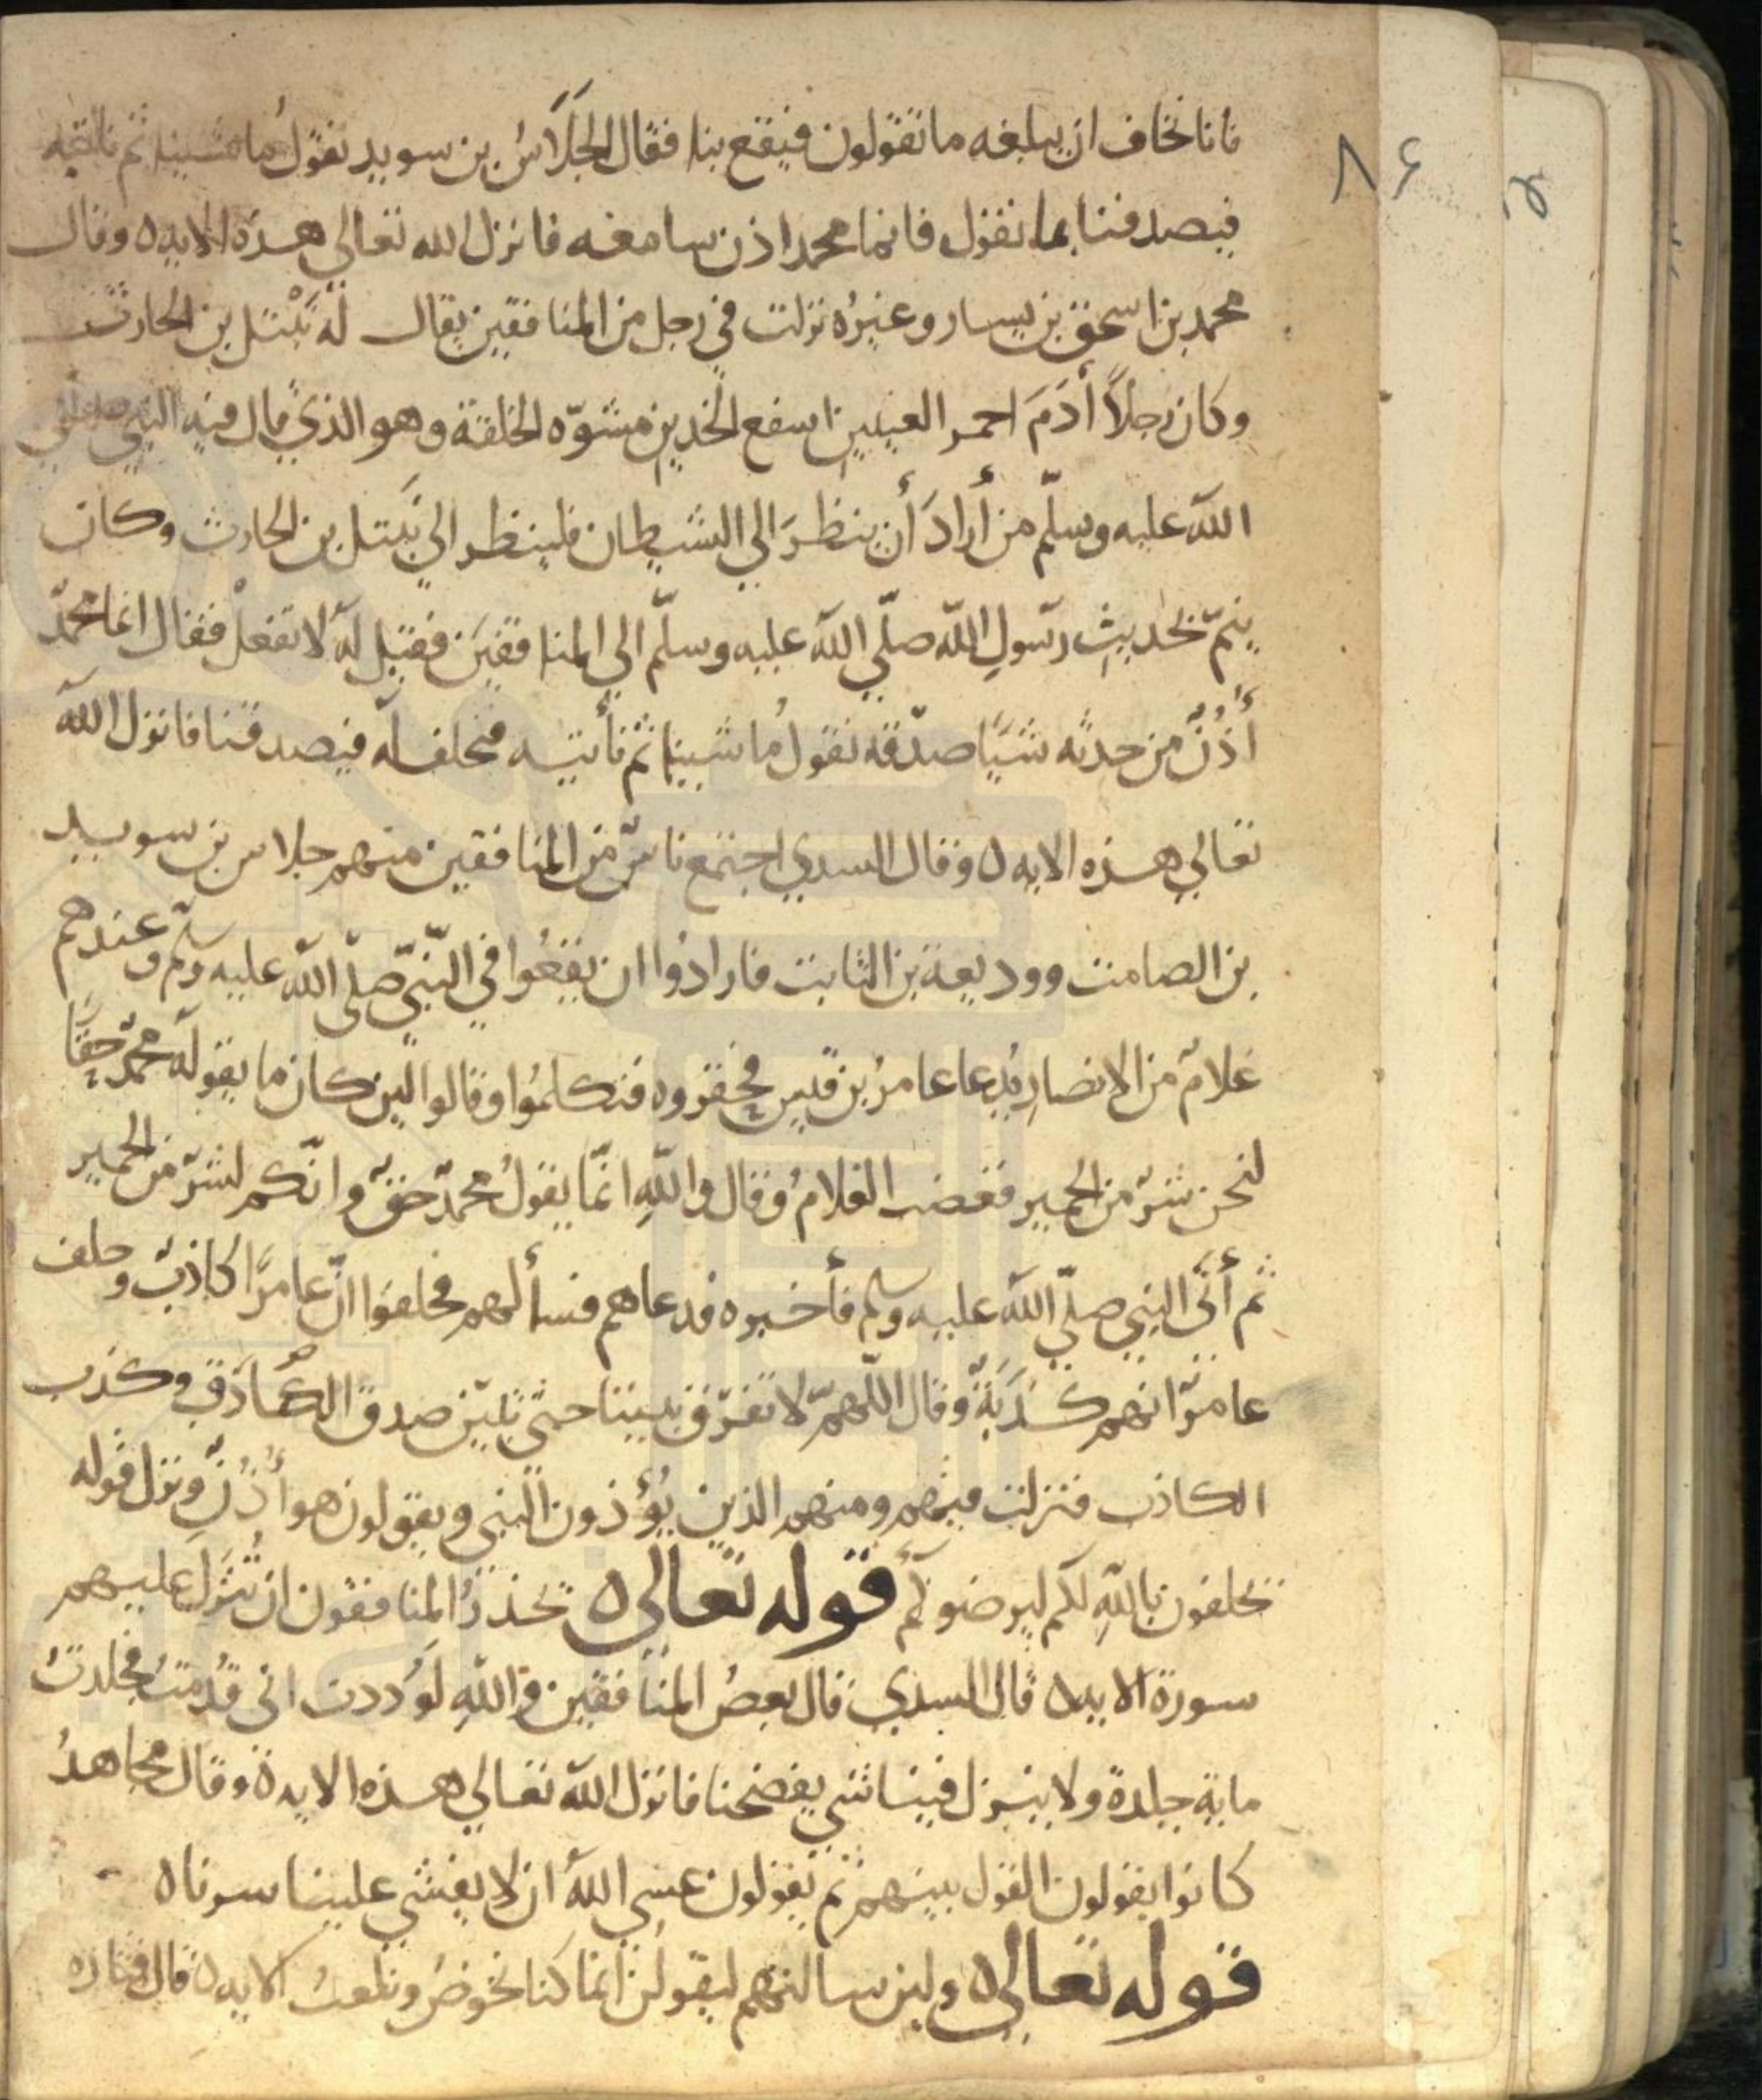 فانا نخاف ان يبلغه ما تقولون فيقع بنا فقال الجلاس بن سويد نقول ما شينا ثم ناتيه
فيصدقنا بما نقول فانما محمد اذن سامعه فانزل الله تعالي هذه الايه ه وقال
محمد بن اسحق بن يسار وغيره نزلت في رجل من المنافقين يقال له نبتل بن الحارث
وكان رجلاً أدَمَ احمر العينين اسفع الخدين مشوّه الخلقة وهو الذي قال فيه النبي صلي
الله عليه وسلّم من أرادَ أن ينظرَ الي الشيطان فلينظر الي نبتل بن الحارث وكان
ينمّ بحديثِ رسولِ الله صلّي الله عليه وسلّم الي المنافقينَ فقيل له لا تفعلْ فقال انما محمدٌ
أُذُنٌ من حدثه شيًا صدّقه نقولُ ما شينا ثم نأتيه فنحلف له فيصدقنا فانزل الله
تعالي هذه الايه ه وقال السدي اجتمع ناسٌ من المنافقين منهم جلاس بن سويد
بن الصامت ووديعة بن الثابت فارادُوا ان يقعُوا في النبيّ صلّى الله عليه وسلم وعندهم
غلامٌ من الانصارِ يُدعا عامرُ بن قيس فحقروه فتكلمُوا وقالوا لين كان ما يقوله محمدٌ حقًا
لنحن شرٌ من الحمير فغضب الغلامُ وقال واللهِ انّما يقولُ محمدٌ حقٌ وانّكم لشرٌ من الحمير
ثم أتَى النبي صلّي الله عليه وسلم فأخبره فدعاهم فسألهم فحلفوا انّ عامرًا كاذبٌ وحلف
عامرٌ انهم كَذَبَةٌ وقال اللّهمّ لا تفرّق بيننا حتي تبيّن صدق الصّادق وكذب
الكاذب فنزلت فيهم ومنهم الذين يُؤذون النبي ويقولون هو أُذُنٌ ونزل قوله
يحلفون باللهِ لكم ليرضوكم قوله تعالى ه يحذرُ المنافقون ان تُنَزَّلَ عليهم
سورة الايه ه قال السدي قال بعضُ المنافقين واللهِ لوَددت اني قُدمتُ فجلدتُ
مايةِ جلدة ولا ينزل فينا شي يفضحنا فانزل الله تعالي هذه الايه ه وقال مجاهدُ
كانوا يقولون القول بينهم ثم يقولون عسي اللهُ ان لا يفشي علينا سرنا ه
قوله تعالى ه ولين سالتهم ليقولُنّ انما كنا نخوضُ ونلعبُ الايه ه قال قتاده